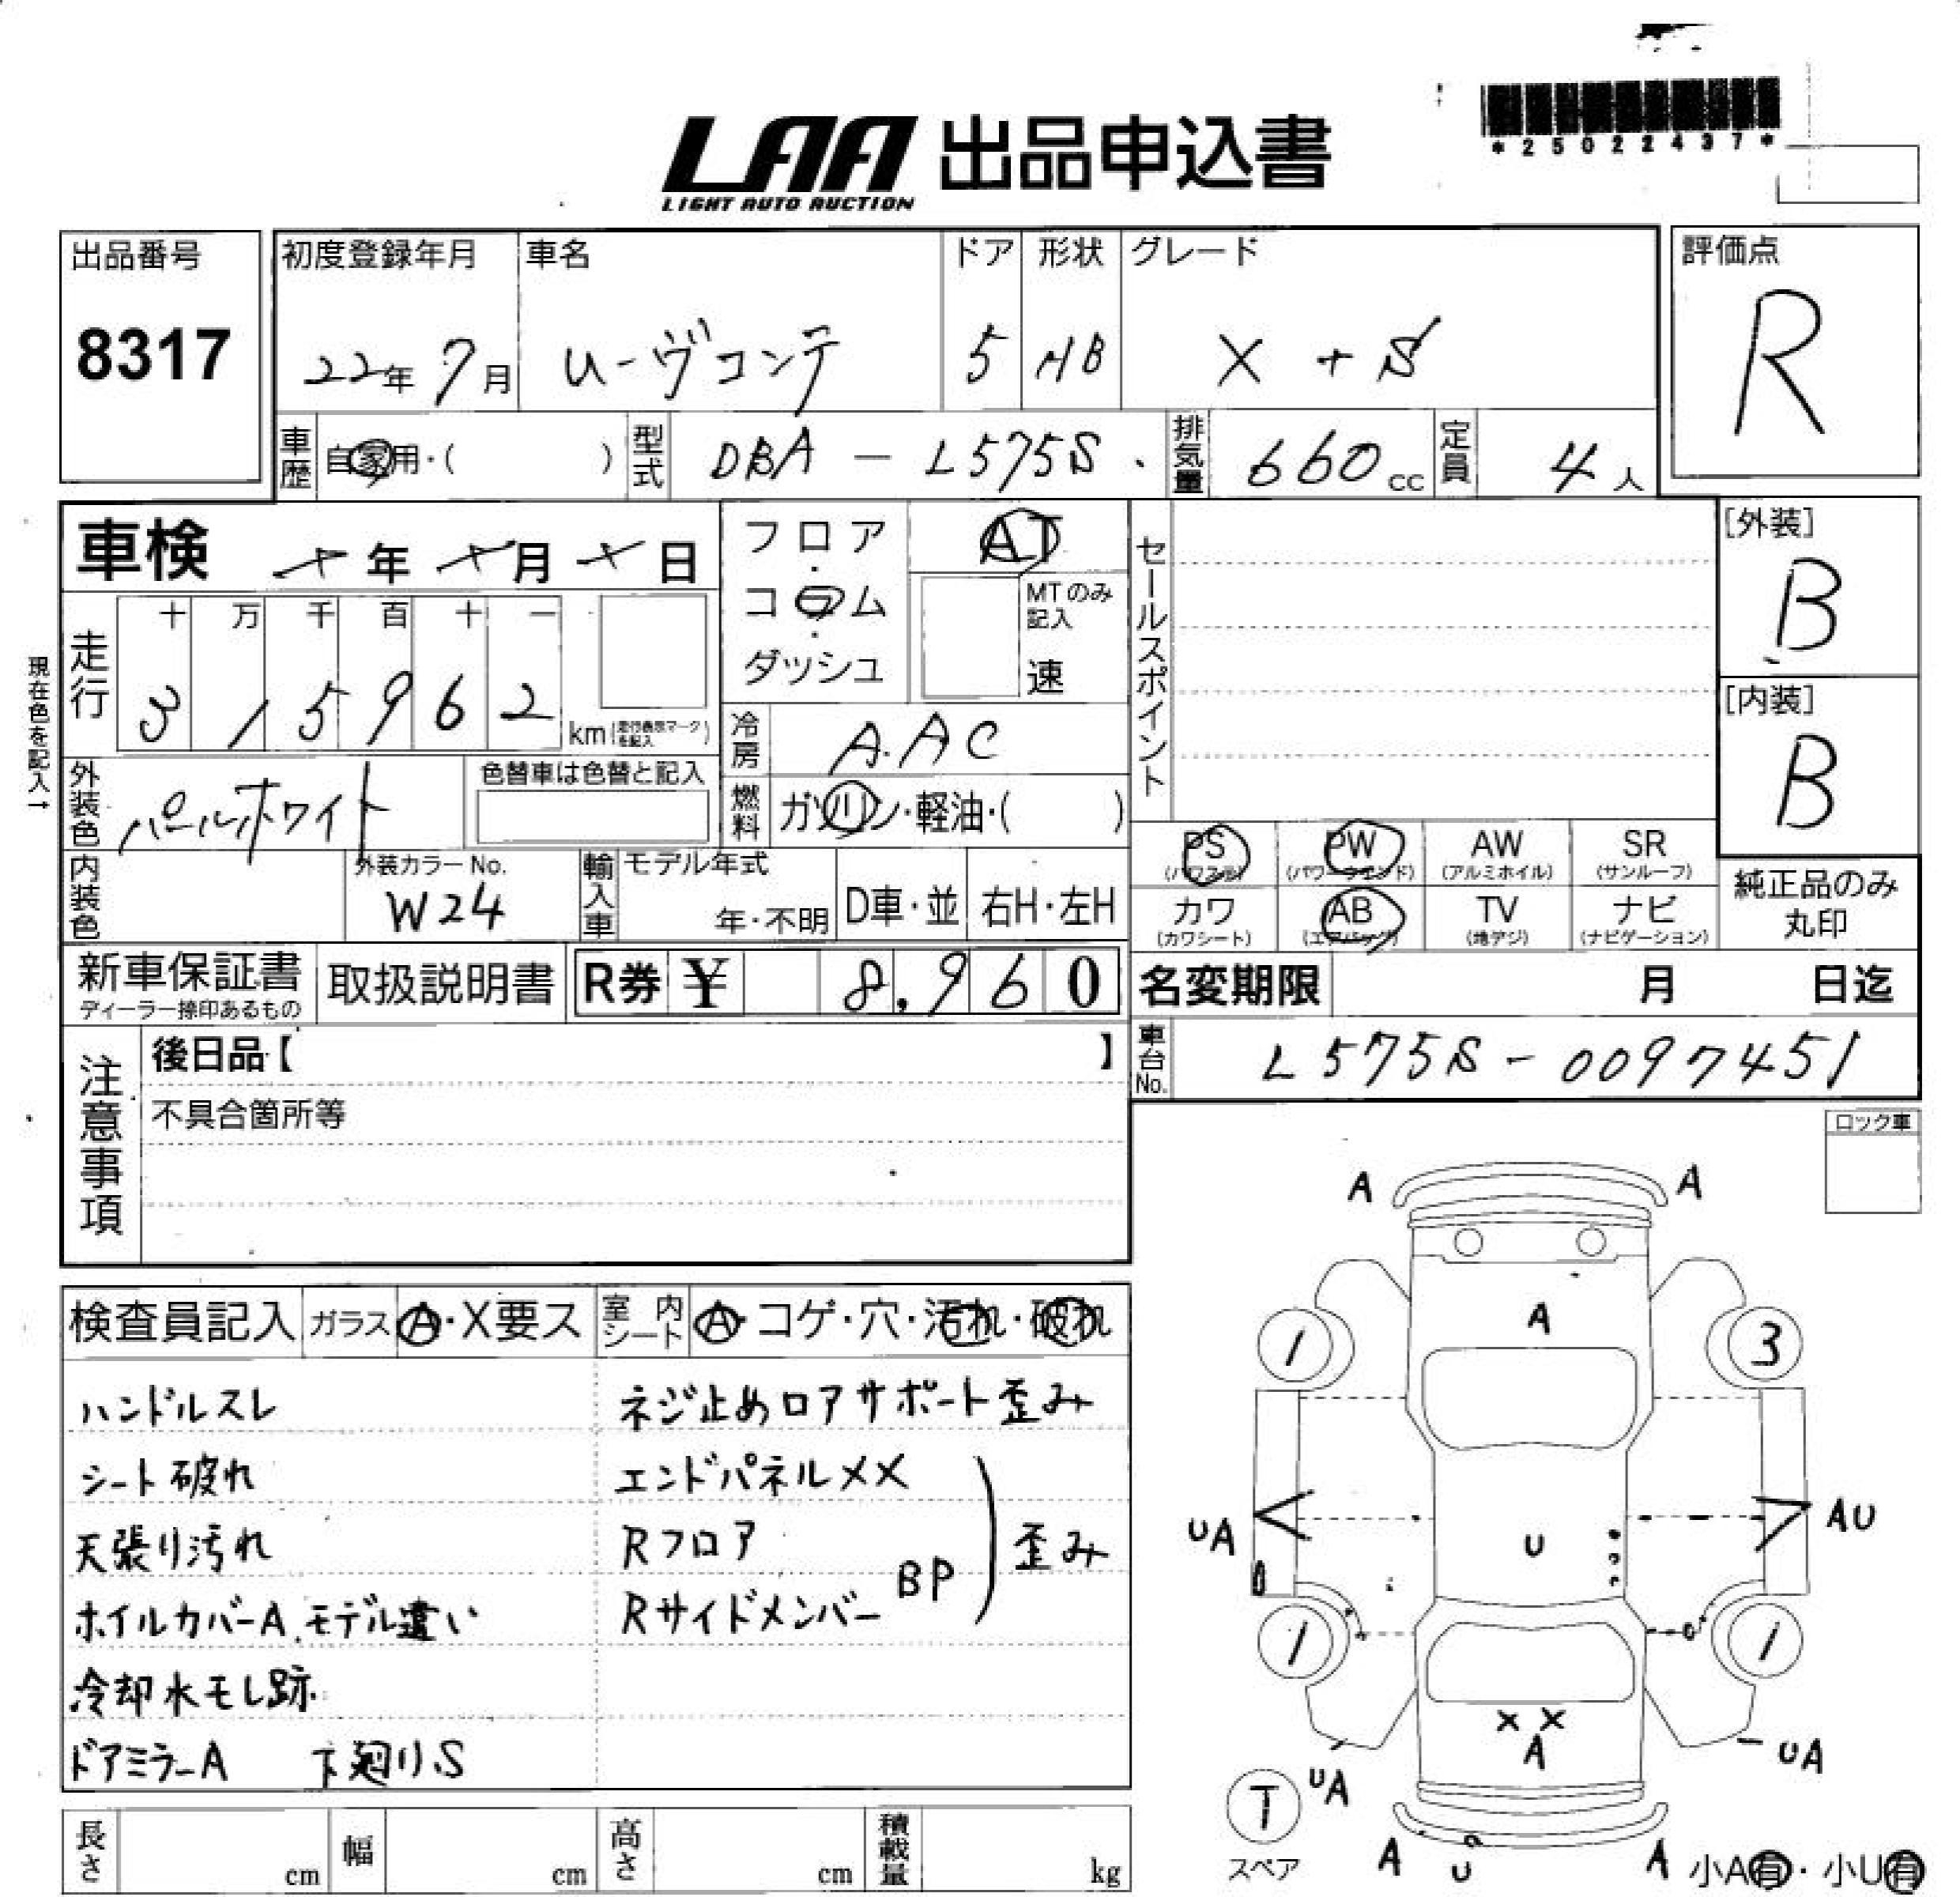 *25022437*
LAA 出品申込書
LIGHT AUTO AUCTION
出品番号
8317
初度登録年月 車名 ドア 形状 グレード
22年 7月 ムーヴコンテ 5 HB X+S
評価点
R
車歴 自家用・( ) 型式 DBA-L575S 排気量 660cc 定員 4人
車検 年 月 日
フロア・コラム・ダッシュ
AT
MTのみ記入
速
セールスポイント
[外装]
B
[内装]
B
現在色を記入→
走行 十 万 千 百 十 一
3 1 5 9 6 2 km (走行表示マークを記入)
冷房 A.AC
外装色 パールホワイト 色替車は色替と記入
燃料 ガソリン・軽油・( )
内装色 外装カラーNo. W24
輸入車 モデル年式 年・不明 D車・並 右H・左H
PS (パワステ) PW (パワーウインド) AW (アルミホイル) SR (サンルーフ)
カワ (カワシート) AB (エアバッグ) TV (地デジ) ナビ (ナビゲーション)
純正品のみ丸印
新車保証書 ディーラー捺印あるもの 取扱説明書 R券 ¥ 8,960
名変期限 月 日迄
車台No. L575S-0097451
注意事項
後日品【 】
不具合箇所等
ロック車
検査員記入 ガラス A・X要ス 室内シート A・コゲ・穴・汚れ・破れ
ハンドルスレ
シート破れ
天張り汚れ
ホイルカバーA.モデル違い
冷却水モレ跡.
ドアミラーA 下廻りS
ネジ止めロアサポート歪み
エンドパネルXX
Rフロア
Rサイドメンバー BP
歪み
A A
A
1 3
UA AU
U
1 1
XX
A
UA UA
T
スペア
A U A
小A有・小U有
長さ cm 幅 cm 高さ cm 積載量 kg